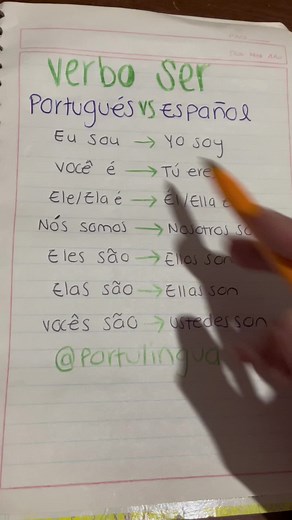 verbo ser
Portugués vs Español
Eu sou → Yo soy
você é → Tú
Ele/Ela é → /Ella
Nós somos → Nosotros
Eles são → Ellos son
Elas são → Ellas son
vocês são → ustedes son
@Portulingua